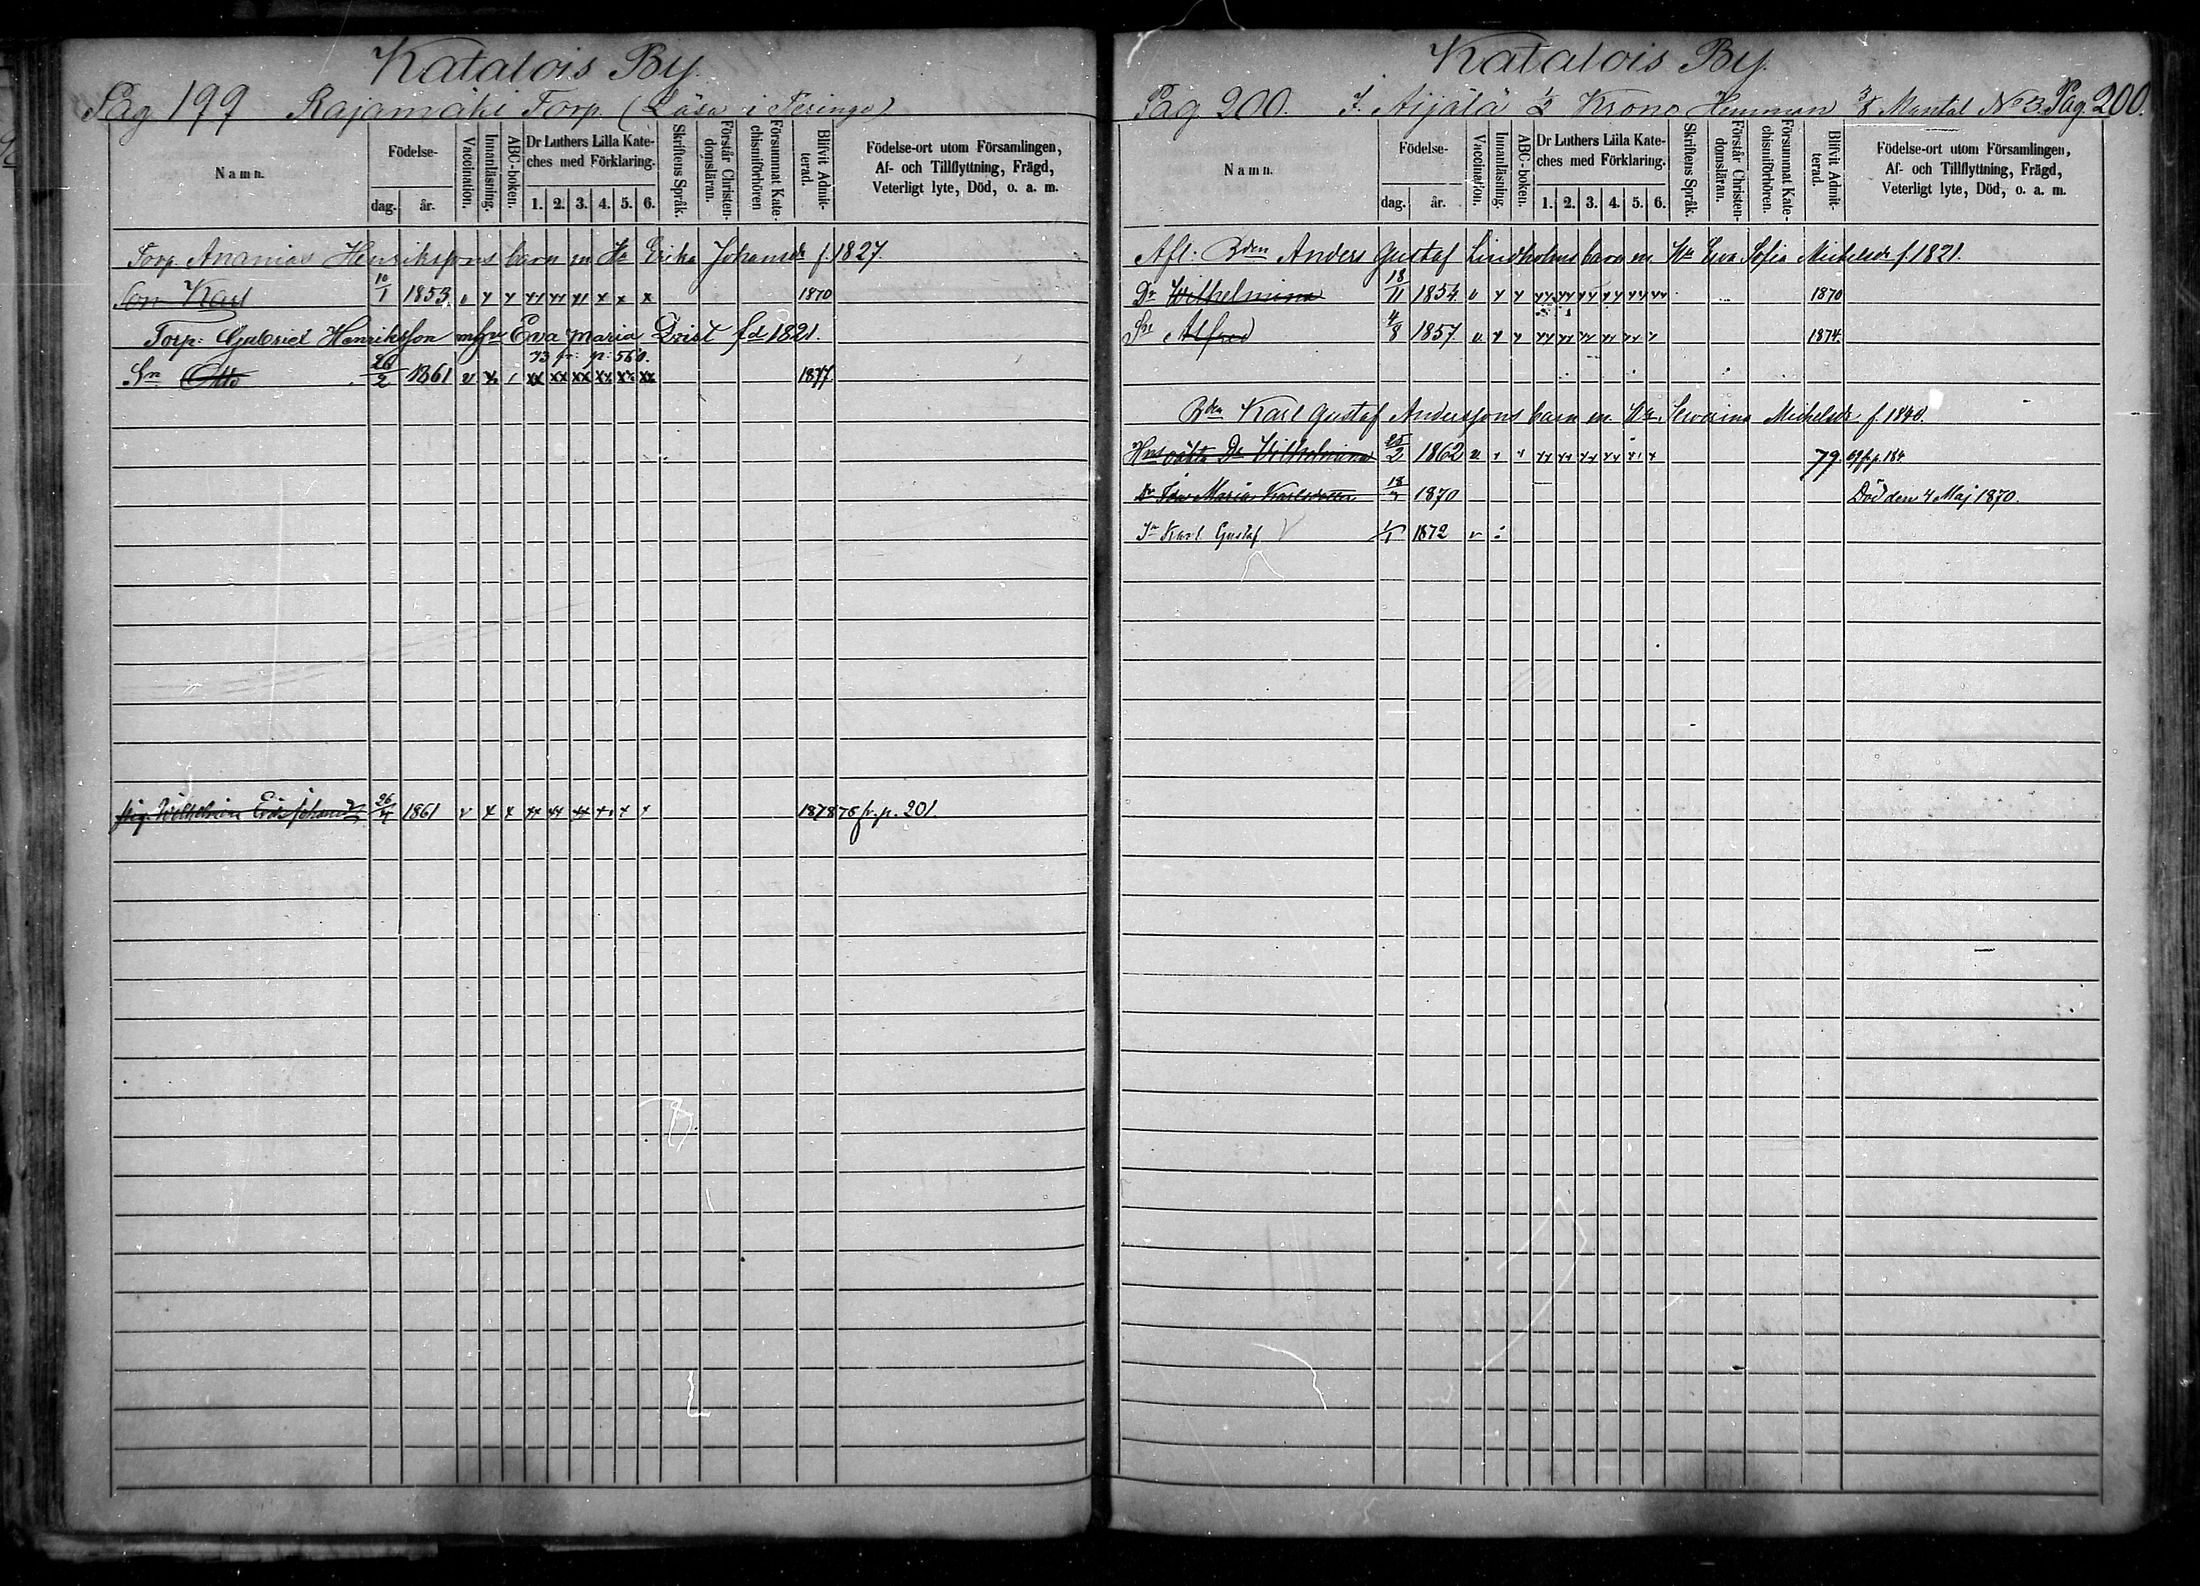 Katalois By.
Pag 199 Rajamäki Torp. (Läsa i Peringo)
Namn. Födelse- dag. år. Vaccination. Innanläsning. ABC-boken. Dr Luthers Lilla Kate-ches med Förklaring. 1. 2. 3. 4. 5. 6. Skriftens Språk. Förstår Christen-domsläran. Försummat Kate-chismiförhören Blifvit Admit-terad. Födelse-ort utom Församlingen, Af- och Tillflyttning, Frägd, Veterligt lyte, Död, o. a. m.
Torp. Ananias Henrikssons barn m Ha Erika Johansdr f. 1827.
Son Karl 10/1 1853. v x x xx xx xx x x x 1870
Torp: Gabriel Henriksson m hu Eva Maria Qvist fd 1821.
73 fr. p: 560.
Sn Otto 26/2 1861 v x / xx xx xx xx xx xx 1877.
Pig. Wilhelmin Erika Johansdr 26/4 1861 v x x xx xx xx x x x 1878 76 fr. p. 201.
Katalois By.
Pag 200. J. Aijälä 1/2 Krono Hemman 3/8 Mantal No 3. Pag. 200.
Namn. Födelse- dag. år. Vaccination. Innanläsning. ABC-boken. Dr Luthers Lilla Kate-ches med Förklaring. 1. 2. 3. 4. 5. 6. Skriftens Språk. Förstår Christen-domsläran. Försummat Kate-chismiförhören. Blifvit Admit-terad. Födelse-ort utom Församlingen, Af- och Tillflyttning, Frägd, Veterligt lyte, Död, o. a. m.
Afl: Bden Anders Gustaf Lindholms barn m Ha Eva Sofia Michelsdr f. 1821.
Dr Wilhelmina 18/11 1854. v x x xx xx xx xx xx xx 1870
Sn Alfred 4/8 1857. v x x xx xx xx xx x x 1874.
Bden Karl Gustaf Anderssons barn m Ha Severina Michelsdr f. 1840.
Hus oäkta Dr Wilhelmina 25/2 1862 v x x xx xx xx xx x x 79 69 fr p. 184
Dr Ida Maria Karlsdotter 1870 Död den 4 Maj 1870.
Sn Karl Gustaf V 1/1 1872 v